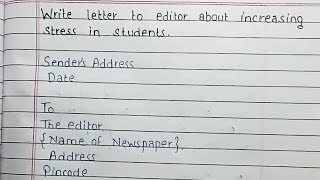 Write letter to editor about increasing
stress in students.
Sender's Address
Date
To
The editor
{Name of Newspaper}.
Address
Pincode